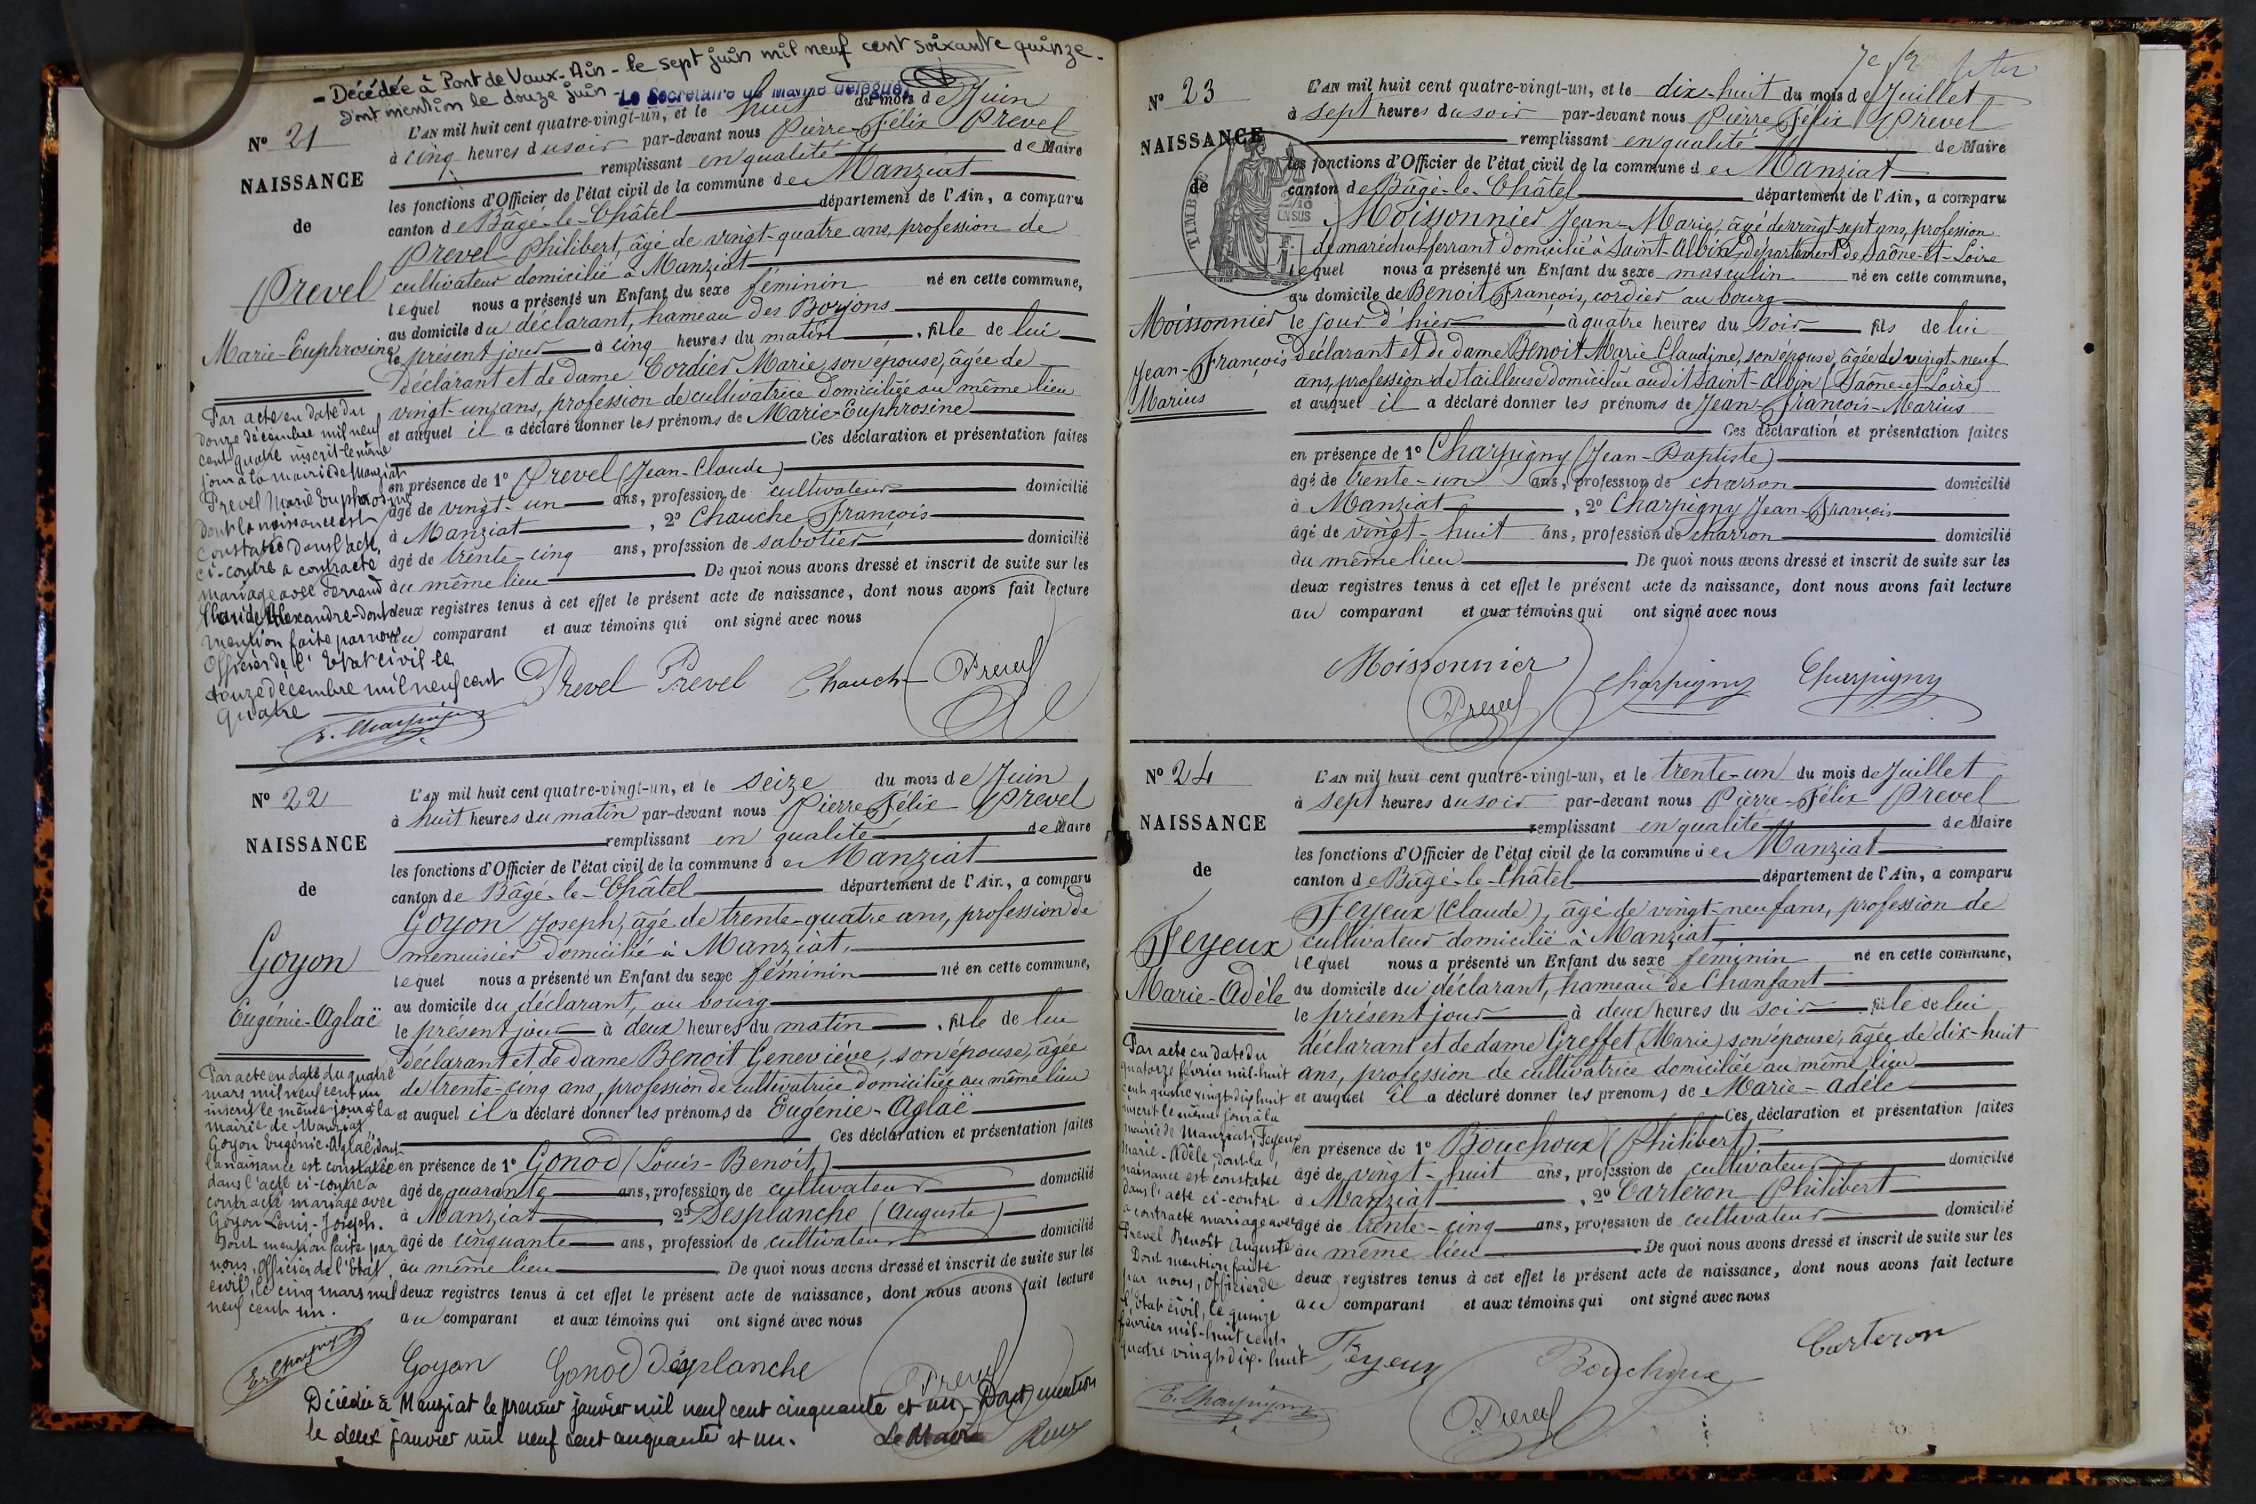 - Décédée à Pont de Vaux-Ain - le sept juin mil neuf cent soixante quinze -
dont mention le douze juin - Le Secrétaire de Mairie délégué,
N° 21
NAISSANCE
de
Prevel
Marie-Euphrosine
L'AN mil huit cent quatre-vingt-un, et le huit du mois de Juin
à cinq heures du soir par-devant nous Pierre-Félix Prevel
remplissant en qualité de Maire
les fonctions d'Officier de l'état civil de la commune de Manziat
canton de Bâgé-le-Châtel département de l'Ain, a comparu
Prevel Philibert, âgé de vingt-quatre ans, profession de
cultivateur domicilié à Manziat
lequel nous a présenté un Enfant du sexe féminin né en cette commune,
au domicile du déclarant, hameau des Boyons
le présent jour à cinq heures du matin, fille de lui
déclarant et de dame Cordier Marie, son épouse, âgée de
vingt-un ans, profession de cultivatrice domiciliée au même lieu
et auquel il a déclaré donner les prénoms de Marie-Euphrosine
Ces déclaration et présentation faites
en présence de 1° Prevel (Jean-Claude)
âgé de vingt-un ans, profession de cultivateur domicilié
à Manziat, 2° Chauche François
âgé de trente-cinq ans, profession de sabotier domicilié
au même lieu De quoi nous avons dressé et inscrit de suite sur les
deux registres tenus à cet effet le présent acte de naissance, dont nous avons fait lecture
au comparant et aux témoins qui ont signé avec nous
Prevel Prevel Chauche Prevel
Par acte en date du
douze décembre mil neuf
cent quatre inscrit le même
jour à la mairie de Manziat
Prevel Marie Euphrosine
dont la naissance est
constatée dans l'acte
ci-contre a contracté
mariage avec Ferrand
Claude Alexandre - Dont
mention faite par nous
Officier de l'Etat civil le
douze décembre mil neuf cent
quatre
E. Charpigny
N° 22
NAISSANCE
de
Goyon
Eugénie-Aglaë
L'AN mil huit cent quatre-vingt-un, et le seize du mois de Juin
à huit heures du matin par-devant nous Pierre Félix Prevel
remplissant en qualité de Maire
les fonctions d'Officier de l'état civil de la commune de Manziat
canton de Bâgé-le-Châtel département de l'Ain, a comparu
Goyon Joseph, âgé de trente-quatre ans, profession de
menuisier domicilié à Manziat,
lequel nous a présenté un Enfant du sexe féminin né en cette commune,
au domicile du déclarant, au bourg
le présent jour à deux heures du matin, fille de lui
déclarant et de dame Benoit Geneviève, son épouse, âgée
de trente-cinq ans, profession de cultivatrice domiciliée au même lieu
et auquel il a déclaré donner les prénoms de Eugénie-Aglaë
Ces déclaration et présentation faites
en présence de 1° Gonod (Louis-Benoit)
âgé de quarante ans, profession de cultivateur domicilié
à Manziat, 2° Desplanche (Auguste)
âgé de cinquante ans, profession de cultivateur domicilié
au même lieu De quoi nous avons dressé et inscrit de suite sur les
deux registres tenus à cet effet le présent acte de naissance, dont nous avons fait lecture
au comparant et aux témoins qui ont signé avec nous
Goyon Gonod Desplanche Prevel
Par acte en date du quatre
mars mil neuf cent un
inscrit le même jour à la
mairie de Manziat
Goyon Eugénie-Aglaë, dont
la naissance est constatée
dans l'acte ci-contre a
contracté mariage avec
Goyon Louis-Joseph.
Dont mention faite par
nous, Officier de l'Etat
civil, le cinq mars mil
neuf cent un.
E. Charpigny
Décédée à Manziat le premier janvier mil neuf cent cinquante et un - Dont mention
le deux janvier mil neuf cent cinquante et un. Le Maire
N° 23
NAISSANCE
de
Moissonnier
Jean-François
Marius
L'AN mil huit cent quatre-vingt-un, et le dix-huit du mois de Juillet
à sept heures du soir par-devant nous Pierre Félix Prevel
remplissant en qualité de Maire
les fonctions d'Officier de l'état civil de la commune de Manziat
canton de Bâgé-le-Châtel département de l'Ain, a comparu
Moissonnier Jean-Marie, âgé de vingt-sept ans, profession
de maréchal-ferrant domicilié à Saint-Albin, département de Saône-et-Loire
lequel nous a présenté un Enfant du sexe masculin né en cette commune,
au domicile de Benoit François, cordier au bourg
le jour d'hier à quatre heures du soir fils de lui
déclarant et de dame Benoit Marie Claudine, son épouse, âgée de vingt-neuf
ans, profession de tailleuse domiciliée audit Saint-Albin (Saône-et-Loire)
et auquel il a déclaré donner les prénoms de Jean-François-Marius
Ces déclaration et présentation faites
en présence de 1° Charpigny (Jean-Baptiste)
âgé de trente-un ans, profession de charron domicilié
à Manziat, 2° Charpigny Jean-François
âgé de vingt-huit ans, profession de charron domicilié
au même lieu De quoi nous avons dressé et inscrit de suite sur les
deux registres tenus à cet effet le présent acte de naissance, dont nous avons fait lecture
au comparant et aux témoins qui ont signé avec nous
Moissonnier Prevel Charpigny Charpigny
N° 24
NAISSANCE
de
Feyeux
Marie-Adèle
L'AN mil huit cent quatre-vingt-un, et le trente-un du mois de Juillet
à sept heures du soir par-devant nous Pierre-Félix Prevel
remplissant en qualité de Maire
les fonctions d'Officier de l'état civil de la commune de Manziat
canton de Bâgé-le-Châtel département de l'Ain, a comparu
Feyeux (Claude), âgé de vingt-neuf ans, profession de
cultivateur domicilié à Manziat
lequel nous a présenté un Enfant du sexe féminin né en cette commune,
au domicile du déclarant, hameau de Chanfant
le présent jour à deux heures du soir fille de lui
déclarant et de dame Greffet (Marie) son épouse, âgée de dix-huit
ans, profession de cultivatrice domiciliée au même lieu
et auquel il a déclaré donner les prénoms de Marie-Adèle
Ces déclaration et présentation faites
en présence de 1° Bouchoux (Philibert)
âgé de vingt-huit ans, profession de cultivateur domicilié
à Manziat, 2° Carteron Philibert
âgé de trente-cinq ans, profession de cultivateur domicilié
au même lieu De quoi nous avons dressé et inscrit de suite sur les
deux registres tenus à cet effet le présent acte de naissance, dont nous avons fait lecture
au comparant et aux témoins qui ont signé avec nous
Feyeux Bouchoux Carteron
Prevel
Par acte en date du
quatorze février mil-huit
cent quatre vingt dix huit
inscrit le même jour à la
mairie de Manziat, Feyeux
Marie-Adèle, dont la
naissance est constatée
dans l'acte ci-contre
a contracté mariage avec
Prevel Benoît Auguste
Dont mention faite
par nous, Officier de
l'état civil, le quinze
février mil-huit cent
quatre vingt-dix-huit
E. Charpigny